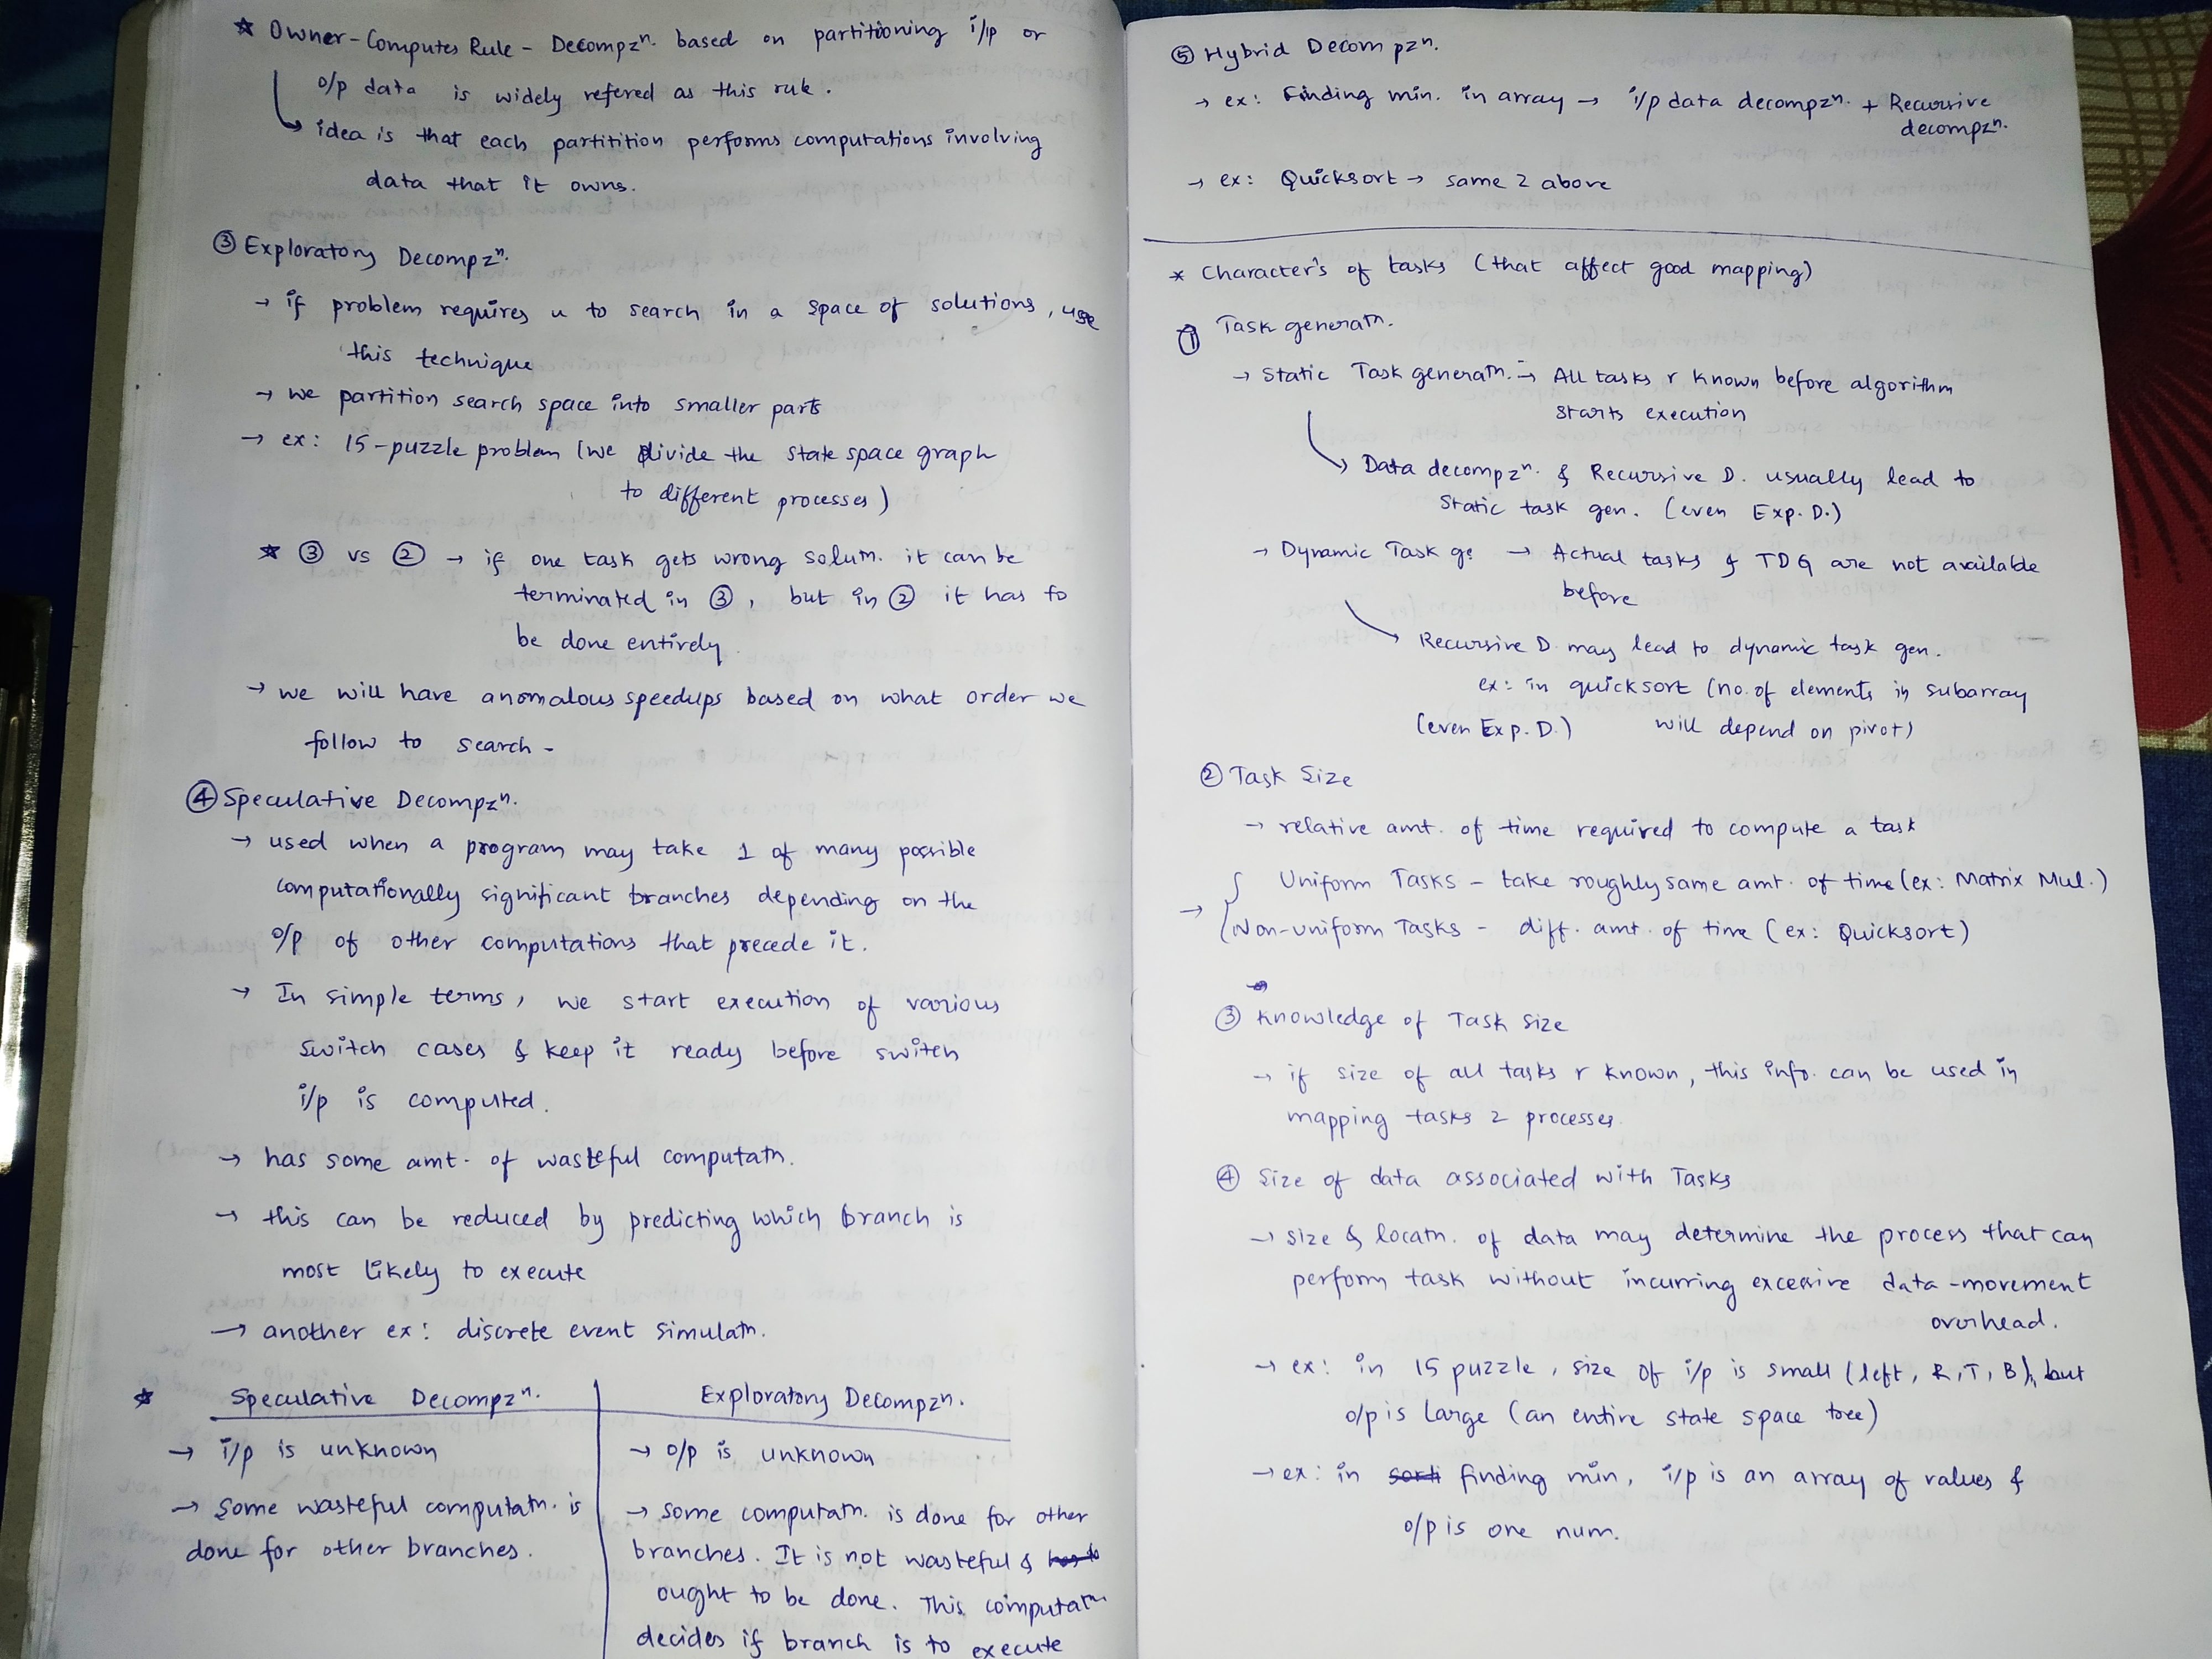 ★ Owner-Computes Rule - Decompzⁿ. based on partitioning i/p or
o/p data is widely refered as this rule.
↳ idea is that each partitition performs computations involving
data that it owns.
③ Exploratory Decompzⁿ.
→ if problem requires u to search in a space of solutions, use
this technique
→ we partition search space into smaller parts
→ ex: 15-puzzle problem (we divide the state space graph
to different processes)
★ ③ vs ② → if one task gets wrong solutn. it can be
terminated in ③, but in ② it has to
be done entirely.
→ we will have anomalous speedups based on what order we
follow to search -
④ Speculative Decompzⁿ.
→ used when a program may take 1 of many possible
computationally significant branches depending on the
o/p of other computations that precede it.
→ In simple terms, we start execution of various
switch cases & keep it ready before switch
i/p is computed.
→ has some amt. of wasteful computatn.
→ this can be reduced by predicting which branch is
most likely to execute
→ another ex: discrete event simulatn.
★ Speculative Decompzⁿ. | Exploratory Decompzⁿ.
→ i/p is unknown
→ some wasteful computatn. is
done for other branches.
→ o/p is unknown
→ some computatn. is done for other
branches. It is not wasteful & has to
ought to be done. This computatn
decides if branch is to execute
⑤ Hybrid Decompzⁿ.
→ ex: Finding min. in array → i/p data decompzⁿ. + Recursive
decompzⁿ.
→ ex: Quicksort → same 2 above
* Character's of tasks (that affect good mapping)
① Task generatn.
→ Static Task generatn. → All tasks r known before algorithm
starts execution
↳ Data decompzⁿ. & Recursive D. usually lead to
static task gen. (even Exp. D.)
→ Dynamic Task ge → Actual tasks & TDG are not available
before
↳ Recursive D. may lead to dynamic task gen.
ex: in quicksort (no. of elements in subarray
(even Exp. D.) will depend on pivot)
② Task Size
→ relative amt. of time required to compute a task
→ { Uniform Tasks - take roughly same amt. of time (ex: Matrix Mul.)
Non-uniform Tasks - diff. amt. of time (ex: Quicksort)
③ Knowledge of Task Size
→ if size of all tasks r known, this info. can be used in
mapping tasks 2 processes.
④ Size of data associated with Tasks
→ size & locatn. of data may determine the process that can
perform task without incurring excessive data-movement
overhead.
→ ex: in 15 puzzle, size of i/p is small (left, R, T, B), but
o/p is large (an entire state space tree)
→ ex: in sorti finding min, i/p is an array of values &
o/p is one num.